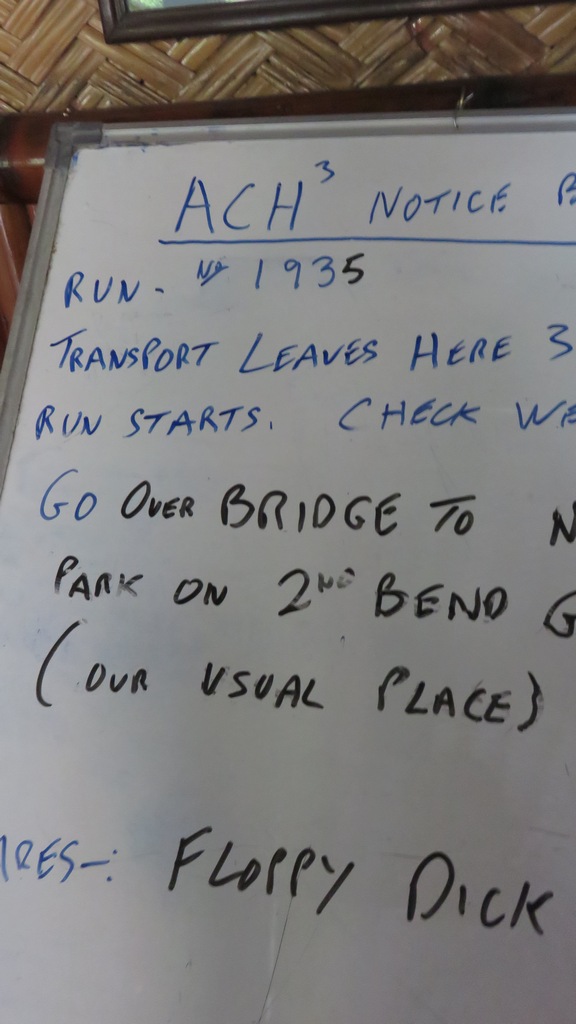 ACH³ NOTICE B
RUN - No 1935
TRANSPORT LEAVES HERE 3
RUN STARTS. CHECK WE
GO OVER BRIDGE TO N
PARK ON 2ND BEND G
(OUR USUAL PLACE)
RES-: FLOPPY DICK